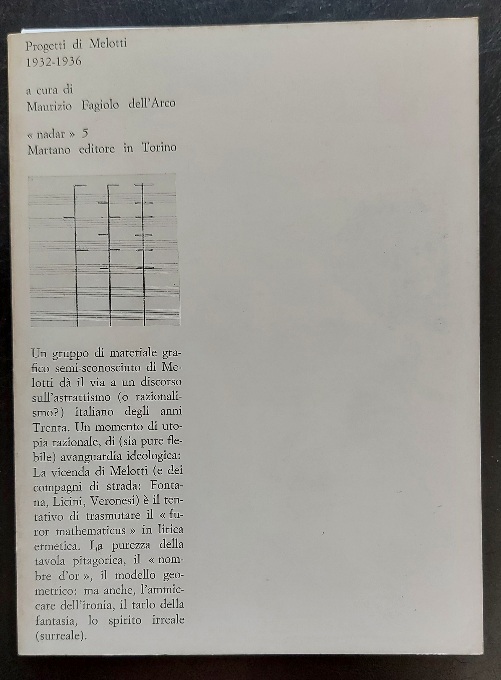 Progetti di Melotti
1932-1936
a cura di
Maurizio Fagiolo dell'Arco
« nadar » 5
Martano editore in Torino
Un gruppo di materiale gra-
fico semi-sconosciuto di Me-
lotti dà il via a un discorso
sull'astrattismo (o razionali-
smo?) italiano degli anni
Trenta. Un momento di uto-
pia razionale, di (sia pure fle-
bile) avanguardia ideologica:
La vicenda di Melotti (e dei
compagni di strada: Fonta-
na, Licini, Veronesi) è il ten-
tativo di trasmutare il « fu-
ror mathematicus » in lirica
ermetica. La purezza della
tavola pitagorica, il « nom-
bre d'or », il modello geo-
metrico: ma anche, l'ammic-
care dell'ironia, il tarlo della
fantasia, lo spirito irreale
(surreale).